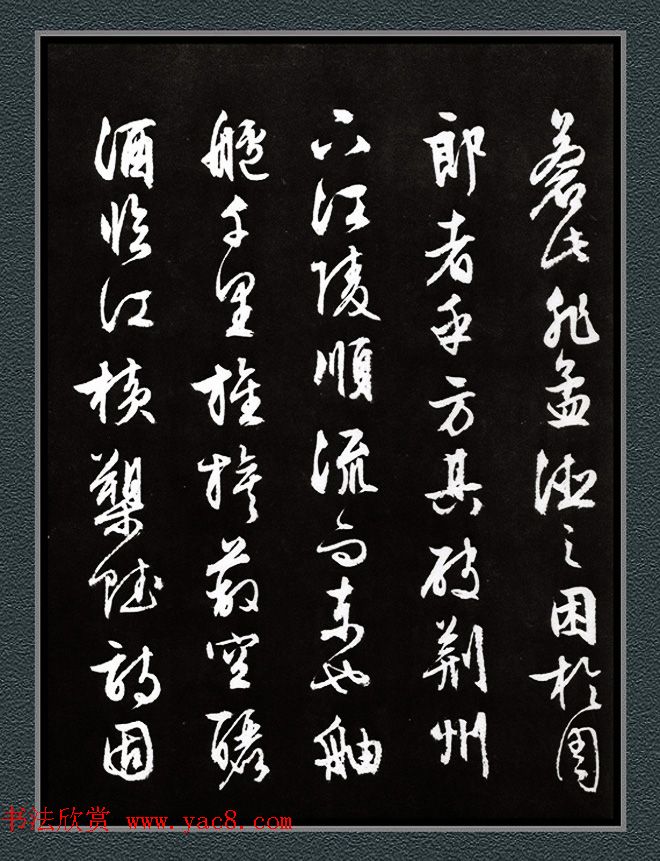 蒼此非孟德之困於周
郎者乎方其破荆州
下江陵順流而東也舳
艫千里旌旗蔽空釃
酒临江横槊賦詩固
书法欣赏 www.yac8.com